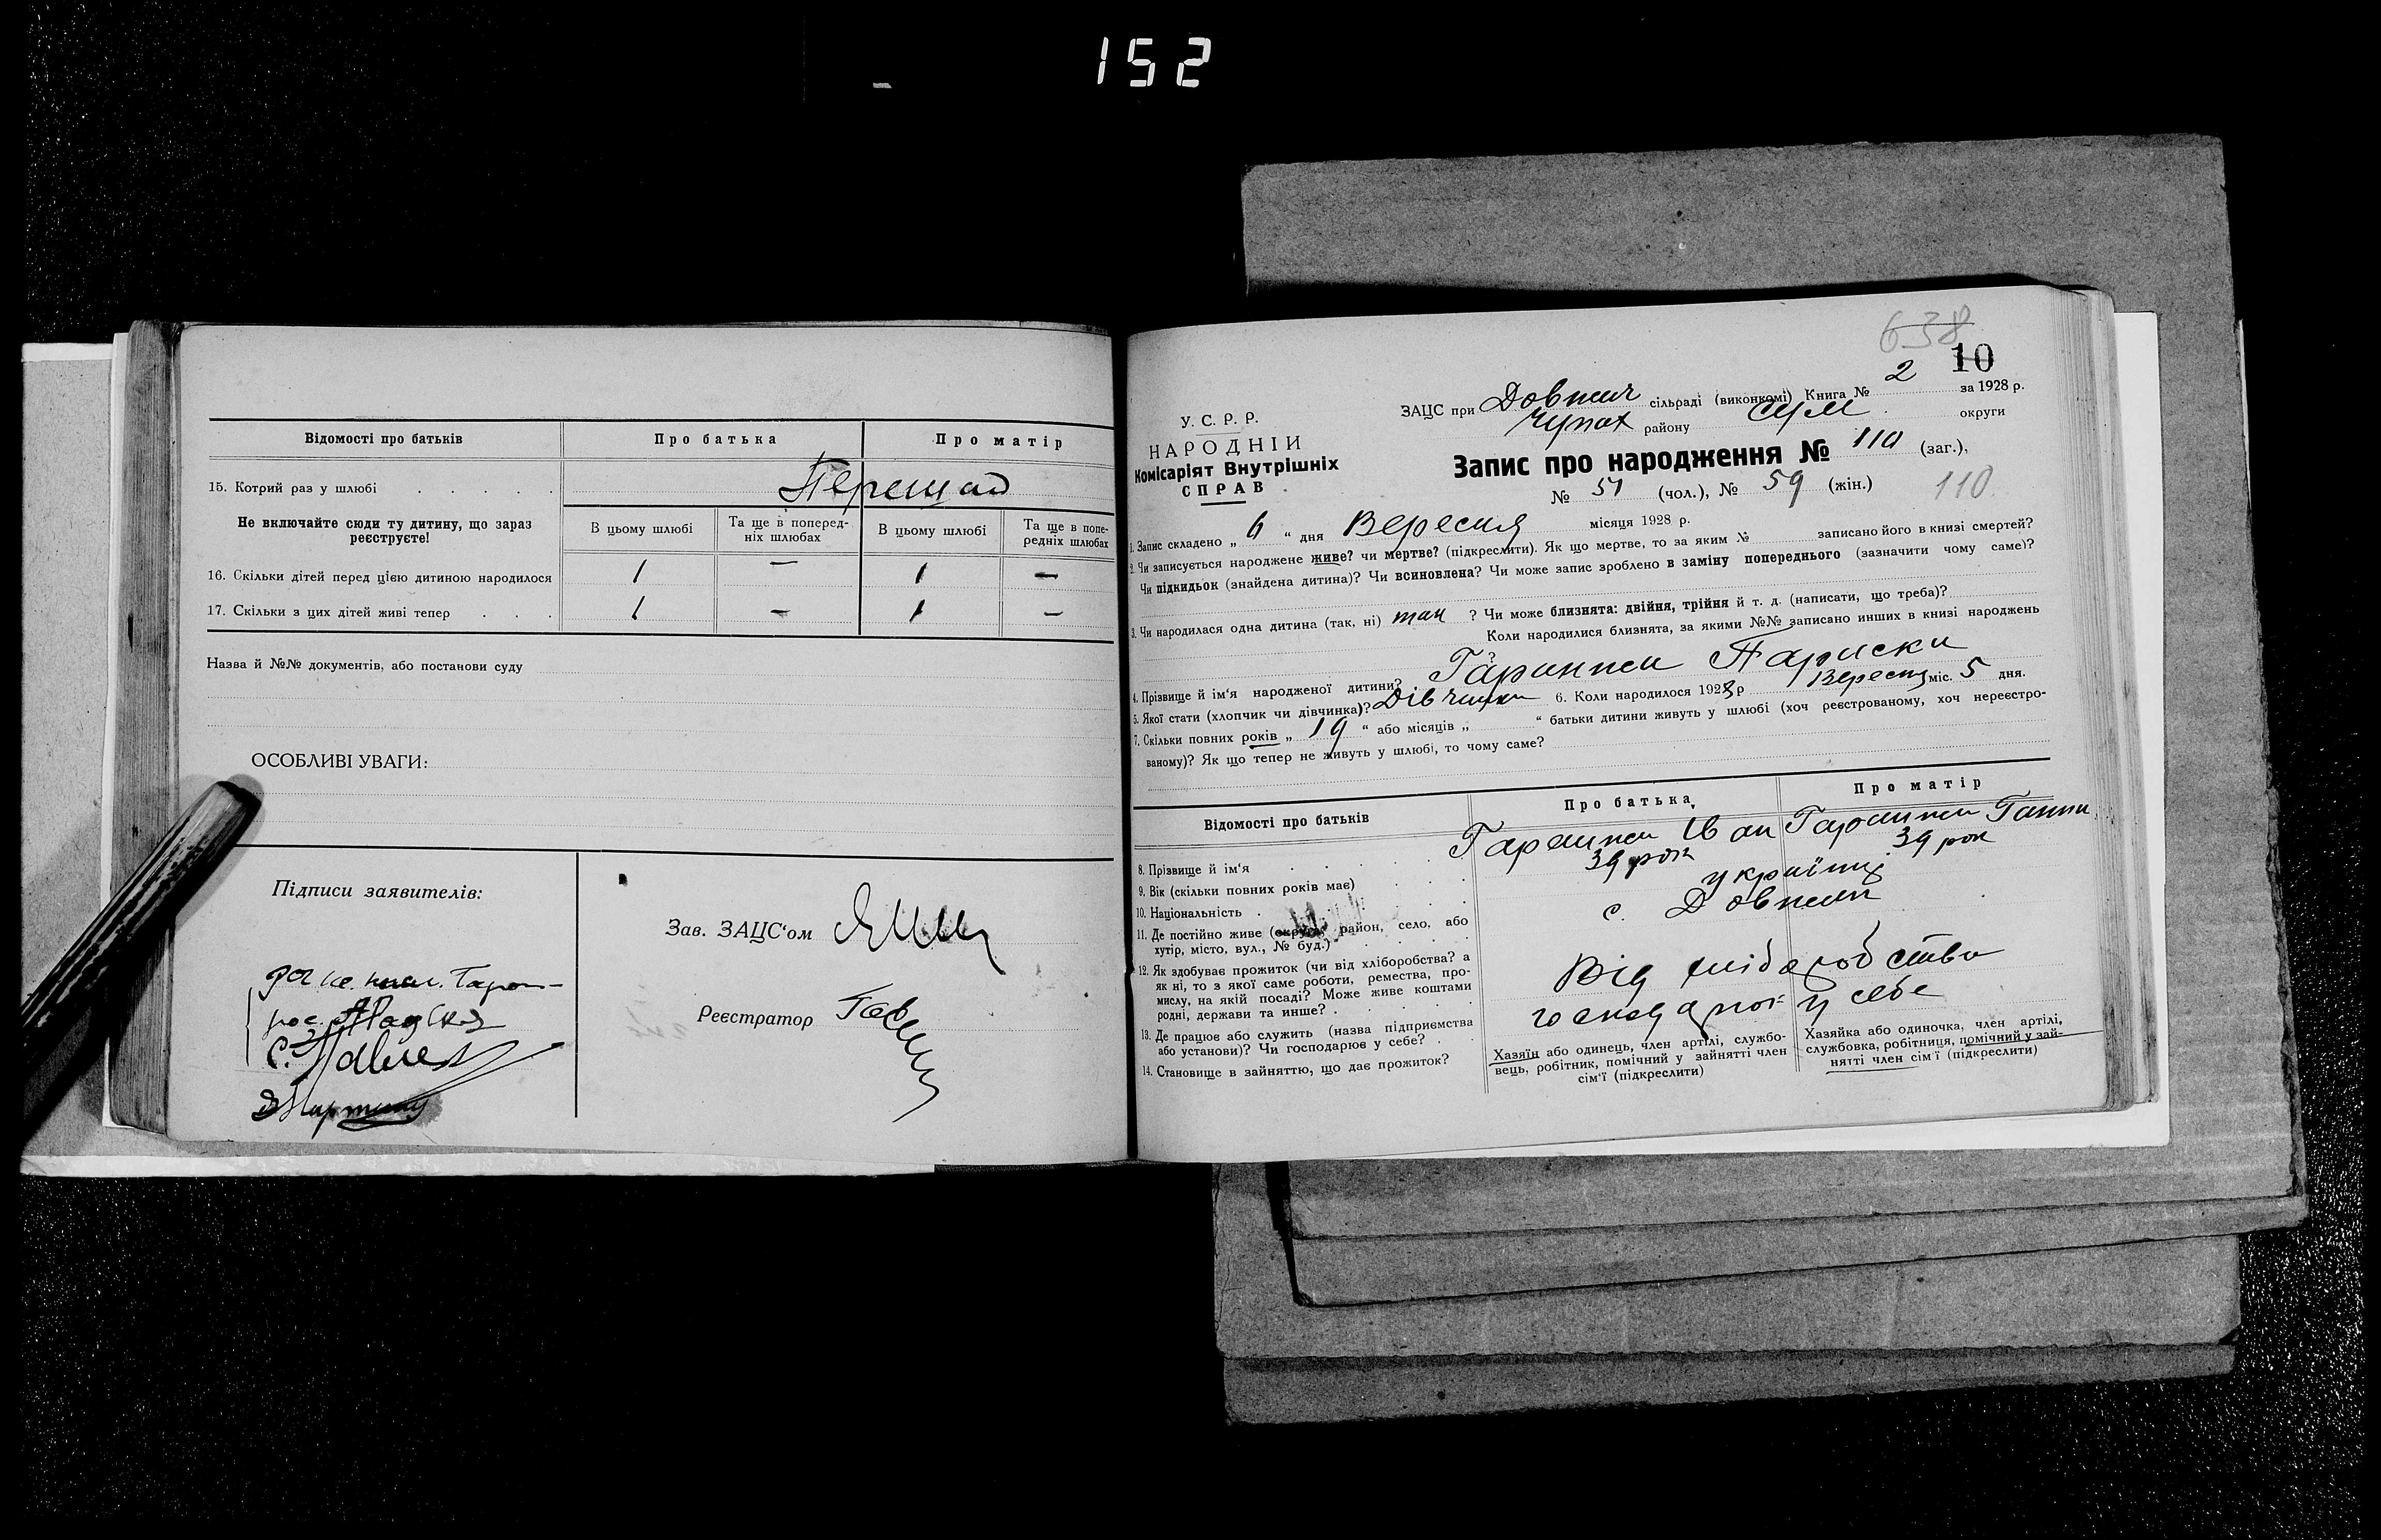 152
Відомості про батьків Про батька Про матір
15. Котрий раз у шлюбі
Не включайте сюди ту дитину, що зараз реєструєте!
В цьому шлюбі Та ще в попередніх шлюбах В цьому шлюбі Та ще в попередніх шлюбах
16. Скільки дітей перед цією дитиною народилося 1 — 1 —
17. Скільки з цих дітей живі тепер 1 — 1 —
Назва й №№ документів, або постанови суду
ОСОБЛИВІ УВАГИ:
Підписи заявителів:
Зав. ЗАЦС‘ом
Реєстратор
638
10
У. С. Р. Р.
НАРОДНІЙ
Комісаріят Внутрішніх
СПРАВ
ЗАЦС при Довжич сільраді (виконкомі) Книга № 2 за 1928 р.
Чупах району Сум округи
Запис про народження № 110 (заг.),
№ 51 (чол.), № 59 (жін.) 110
1. Запис складено „ 6 “ дня Вересня місяця 1928 р.
2. Чи записується народжене живе? чи мертве? (підкреслити). Як що мертве, то за яким № записано його в книзі смертей?
Чи підкидьок (знайдена дитина)? Чи всиновлена? Чи може запис зроблено в заміну попереднього (зазначити чому саме)?
3. Чи народилася одна дитина (так, ні) так ? Чи може близнята: двійня, трійня й т. д. (написати, що треба)?
Коли народилися близнята, за якими №№ записано инших в книзі народжень
?
4. Прізвище й ім‘я народженої дитини?
5. Якої стати (хлопчик чи дівчинка)? Дівчинка 6. Коли народилося 1928 р Вересня міс. 5 дня.
7. Скільки повних років „ 19 “ або місяців „ “ батьки дитини живуть у шлюбі (хоч реєстрованому, хоч нереєстро-
ваному)? Як що тепер не живуть у шлюбі, то чому саме?
Відомості про батьків Про батька Про матір
8. Прізвище й ім‘я Іван Ганна
9. Вік (скільки повних років має) 39 рок 39 рок
10. Національність українці
11. Де постійно живе (округа, район, село, або
хутір, місто, вул., № буд.) с. Довжик
12. Як здобуває прожиток (чи від хліборобства? а
як ні, то з якої саме роботи, ремества, про-
мислу, на якій посаді? Може живе коштами
родні, держави та инше? Від хліборобства
13. Де працює або служить (назва підприємства
або установи)? Чи господарює у себе? у себе
14. Становище в зайняттю, що дає прожиток?
Хазяїн або одинець, член артілі, службо-
вець, робітник, помічний у зайнятті член
сім‘ї (підкреслити)
Хазяйка або одиночка, член артілі,
службовка, робітниця, помічний у зай-
нятті член сім‘ї (підкреслити)